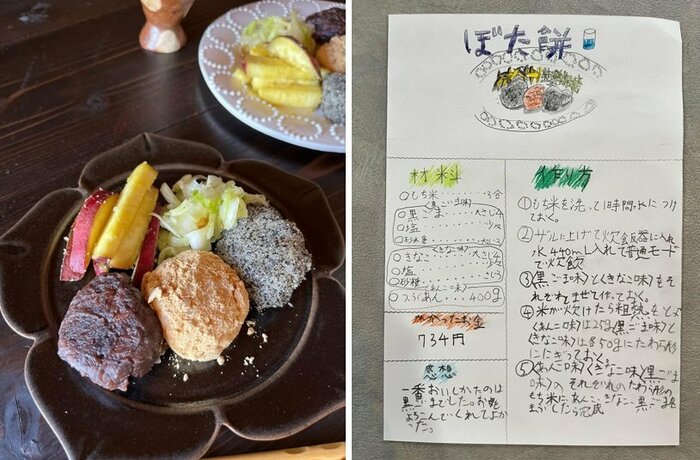 ぼた餅
材料
○もち米・・・・・3合
〈黒ごま味〉
○黒ごま・・・大さじ4
○塩・・・・・少々
○砂糖・・・大さじ
〈きなこ味〉
○きなこ・・・大さじ4
○塩・・・・・少々
○砂糖・・・・
〈あんこ味〉
○つぶあん・・400g
かかったお金
734円
感想
一番おいしかったのは
黒ごまでした。お乾
よろこんでくれてよか
かったっ
作り方
①もち米を洗って1時間水につけ
ておく。
②ザルに上げて炊飯器に入れ
水440ml入れて普通モード
で炊飯
③〈黒ごま味〉と〈きなこ味〉もそ
れぞれまぜて作っておく。
④米が炊けたら粗熱をとっ
〈あんこ味〉は25g〈黒ごま味〉と
〈きなこ味〉は各50gにたわら形
ににぎっておく。
⑤〈あんこ味〉〈きなこ味〉〈黒ごま
味〉のそれぞれのたわら形の
もち米にあんこ、きなこ、黒ごまを
まぶしたら完成